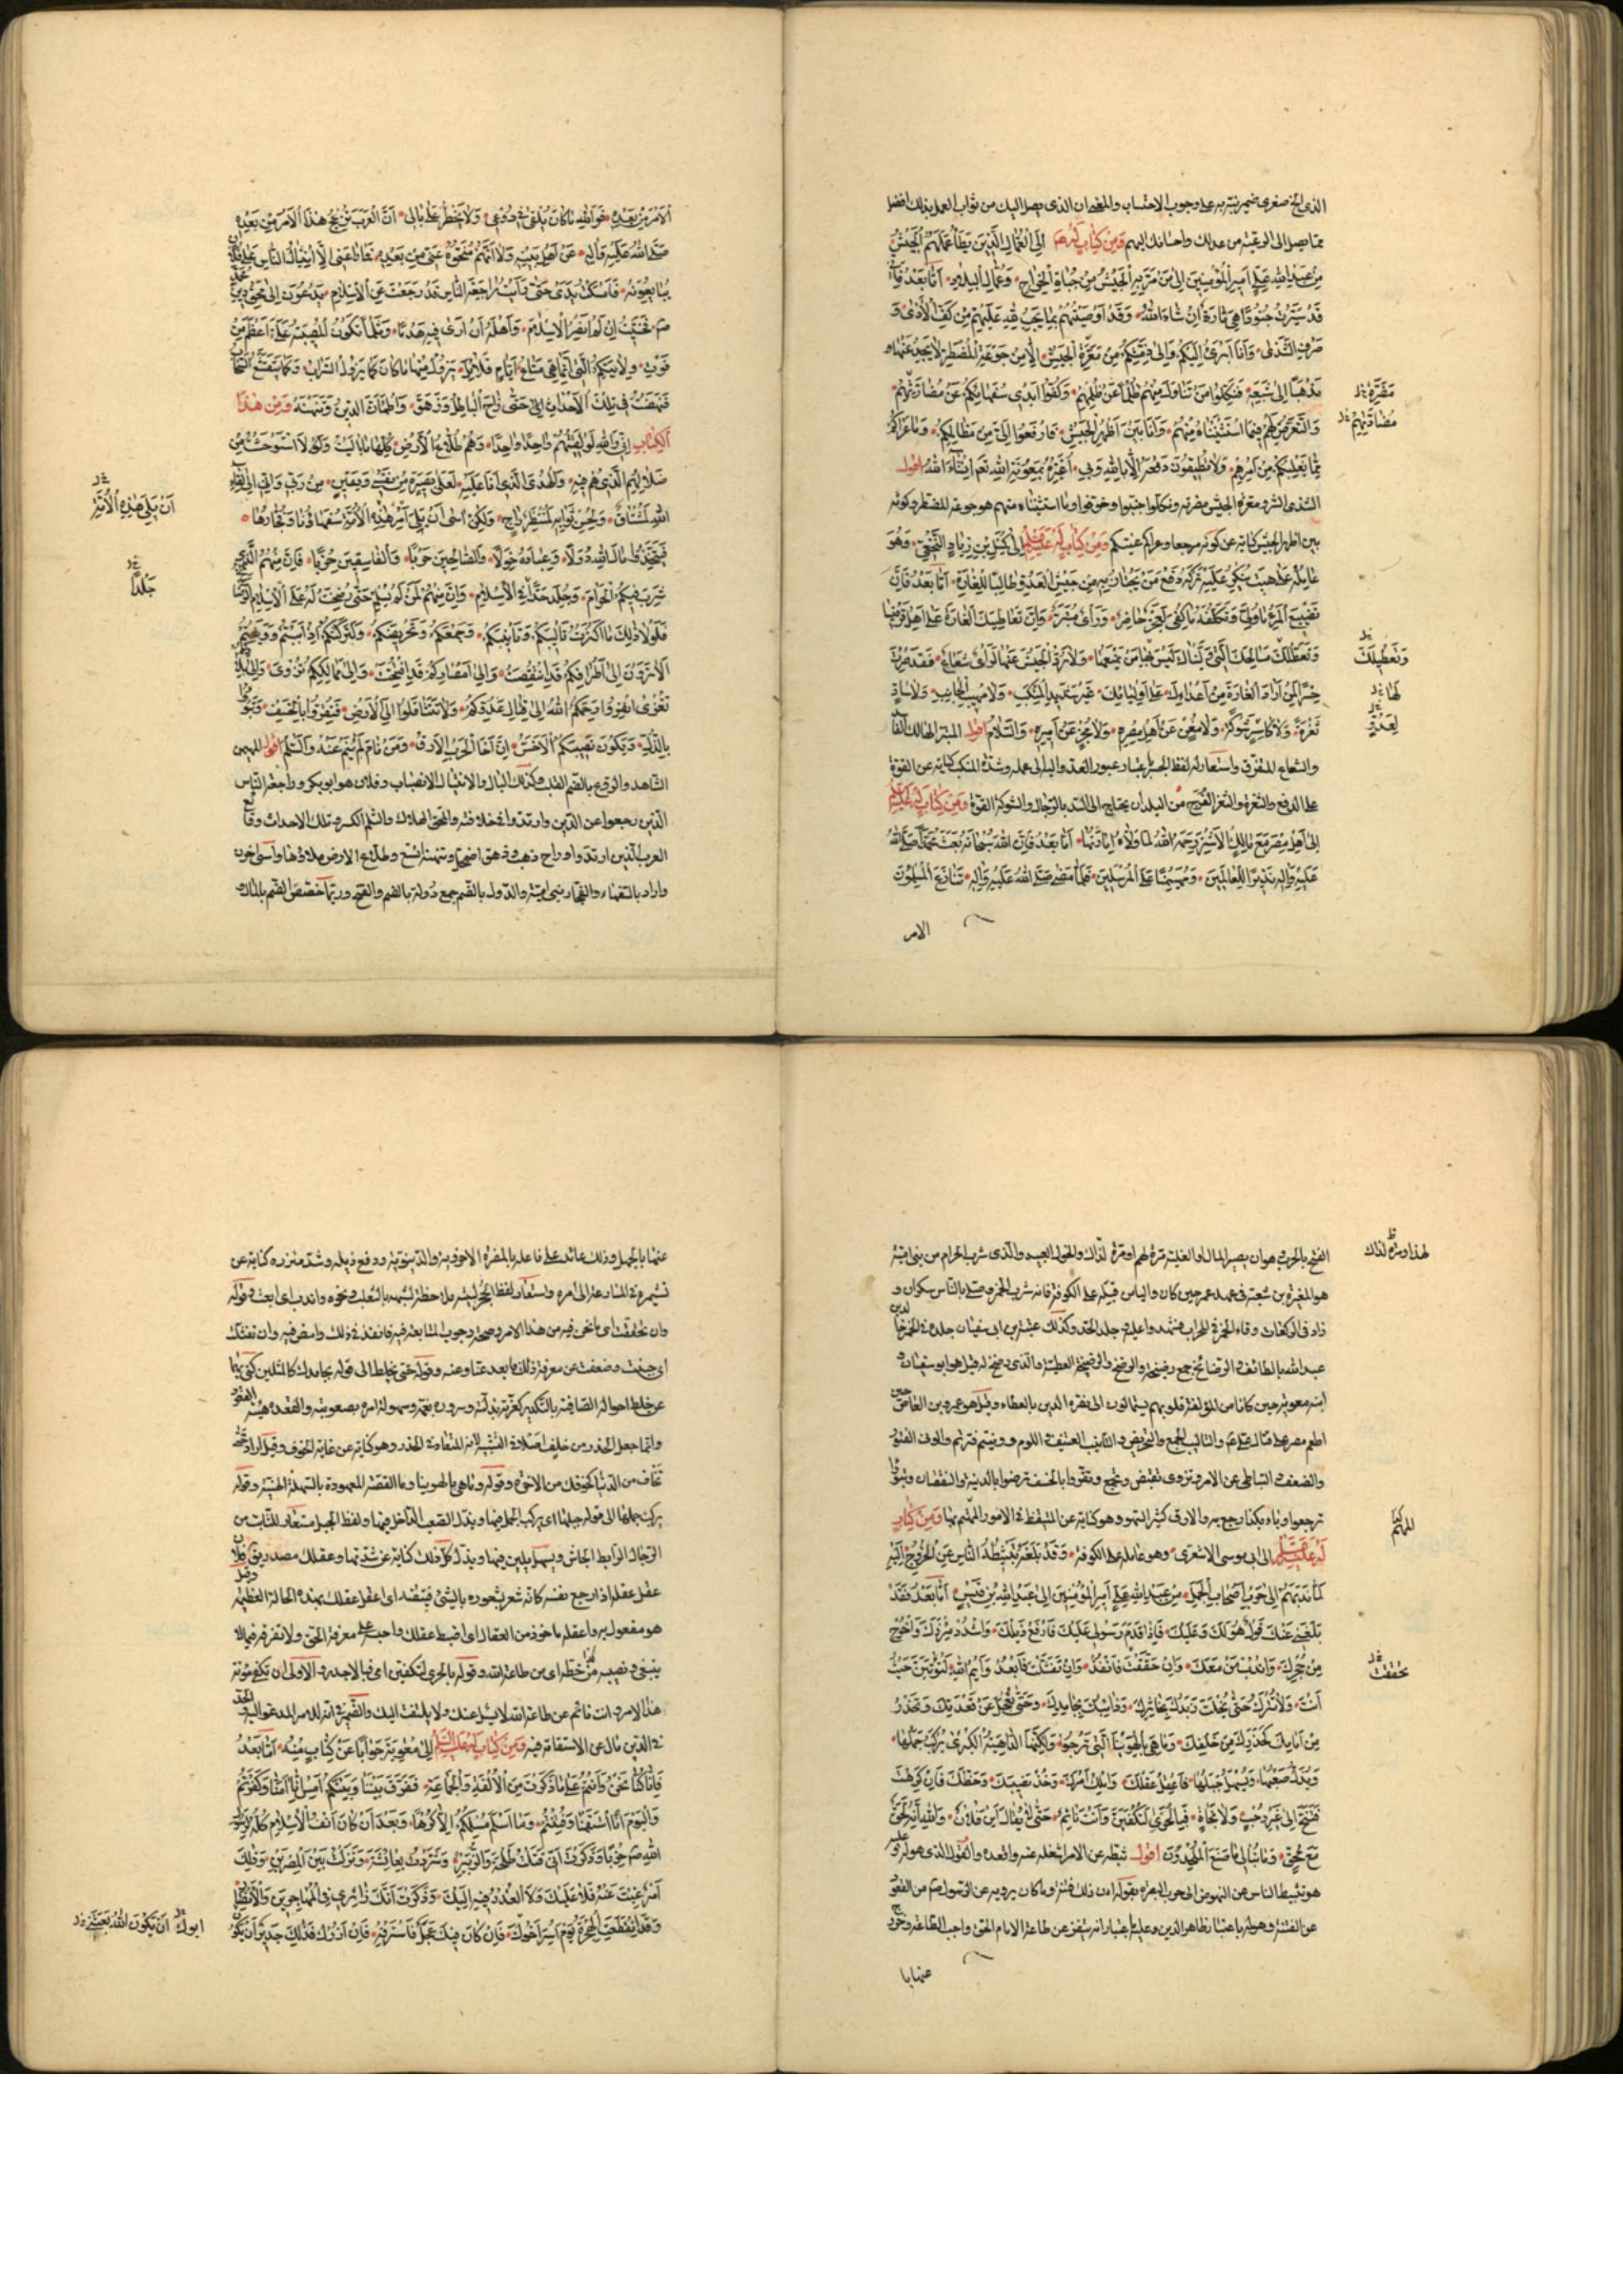 الذى الخ صغرى ضمير نبّه به على وجوب الاحتساب والمفهم ان الذى يصل اليك من ثواب العمل بذلك افضل
ممّا يصل الى الرعيّة من عدلك واحسانك اليهم ومن كتاب له ع الى العمّال الّذين يطأ عملهم الجيش
من عبد الله علىّ امير المؤمنين الى من مرّ به الجيش من جباة الخراج وعمّال البلاد امّا بعد فانّى
قد سيّرت جنودا هى مارّة بكم ان شاء الله وقد اوصيتهم بما يجب لله عليهم من كفّ الاذى و
صرف الشّذى وانا ابرئ اليكم والى ذمّتكم من معرّة الجيش الّا من جوعة المضطرّ لا يجد عنها
مذهبا الى شبعه فنكّلوا من تناول منهم ظلما عن ظلمهم وكفّوا ايدى سفهائكم عن مضارّتهم
والتّعرّض لهم فيما استثنيناه منهم وانا بين اظهر الجيش فارفعوا الىّ من مظالمكم وما عراكم
ممّا يغلبكم من امرهم ولا تطيقون دفعه الّا بالله وبى اغيّره بمعونة الله نعم ان شاء الله اقول
الشذى الشر ومعرة الجيش مضرته ونكلوا جبنوا وخوفوا وما استثناه منهم هو جوعة المضطر وكونه
بين اظهر الجيش كناية عن كونه مرجعا وعراكم غشيكم ومن كتاب له عليه السلم الى كميل بن زياد النّخعىّ وهو
عامله على هيت ينكر عليه تركه دفع من يجتاز به من جيش العدوّ طالبا للغارة امّا بعد فانّ
تضييع المرء ما ولّى وتكلّفه ما كفى لعجز حاضر ورأى متبّر وانّ تعاطيك الغارة على اهل قرقيسيا
وتعطّلك مسالحك الّتى ولّيناك ليس بها من يمنعها ولا يردّ الجيش عنها لرأى شعاع فقد صرت
جسرا لمن اراد الغارة من اعدائك على اوليائك غير شديد المنكب ولا مهيب الجانب ولا سادّ
ثغرة ولا كاسر شوكة ولا مغن عن اهل مصره ولا مجز عن اميره والسّلام اقول المتبّر الهالك الفاسد
والشعاع المتفرّق واستعار له لفظ الجسر باعتبار عبور العدو الى عمله وشدّة المنكب كناية عن القوّة
على الدفع والثغرة والثغر الفرج من البلدان يحتاج الى السّد بالرّجال والشوكة القوّة ومن كتاب له عليه السلم
الى اهل مصر مع مالك الاشتر رحمه الله لما ولّاه امارتها امّا بعد فانّ الله سبحانه بعث محمّدا صلّى الله
عليه وآله نذيرا للعالمين ومهيمنا على المرسلين فلمّا مضى صلّى الله عليه وآله تنازع المسلمون
الامر
معرّة
مضادّتهم
وتعطيلك
لها
لعدوّ
الامر من بعده فوالله ما كان يلقى فى روعى ولا يخطر على بالى انّ العرب تزعج هذا الامر من بعده
صلّى الله عليه وآله عن اهل بيته ولا انّهم منحّوه عنّى من بعده فما راعنى الّا انثيال الناس على فلان
يبايعونه فامسكت يدى حتى رأيت راجعة الناس قد رجعت عن الاسلام يدعون الى محق دين محمد
ص فخشيت ان لم انصر الاسلام واهله ان ارى فيه هدما وثلما تكون المصيبة به علىّ اعظم من
فوت ولايتكم الّتى انّما هى متاع ايّام قلائل يزول منها ما كان كما يزول السّراب وكما يتقشّع السّحاب
فنهضت فى تلك الاحداث حتّى زاح الباطل وزهق واطمأنّ الدين وتنهنه ومن هذا
الكتاب انّى والله لو لقيتهم واحدا وهم طلاع الارض كلّها ما باليت ولا استوحشت وانّى من
ضلالهم الّذى هم فيه والهدى الّذى انا عليه لعلى بصيرة من نفسى ويقين من ربّى وانّى الى لقاء
الله لمشتاق ولحسن ثوابه لمنتظر راج ولكنّى آسى ان يلى امر هذه الامّة سفهاؤها وفجّارها
فيتّخذوا مال الله دولا وعباده خولا والصّالحين حربا والفاسقين حزبا فانّ منهم الّذى
شرب فيكم الحرام وجلد حدّا فى الاسلام وانّ منهم لمن لم يسلم حتّى رضخت له على الاسلام الرضائخ
فلولا ذلك ما اكثرت تأليبكم وتأنيبكم وجمعكم وتحريضكم ولتركتكم اذ ابيتم وونيتم
الا ترون الى اطرافكم قد انتقصت والى امصاركم قد افتتحت والى ممالككم تزوى والى بلادكم
تغزى انفروا رحمكم الله الى قتال عدوّكم ولا تثّاقلوا الى الارض فتقرّوا بالخسف وتبوؤا
بالذّلّ ويكون نصيبكم الاخسّ انّ اخا الحرب الارق ومن نام لم ينم عنه والسّلم اقول المهيمن
الشاهد والروع بالضّم القلب وكذلك البال والانثيال الانصباب وفلان هو ابو بكر وراجعة النّاس
الذين رجعوا عن الدّين وارتدوا فى خلافته والمحق الهلاك والثلم الكسر وتلك الاحداث وقايع
العرب الذين ارتدوا وزاح ذهب وزهق اضمحلّ وتنهنه اتسع وطلاع الارض ملاؤها وآسى احزن
واراد بالسفهاء والفجّار بنى اميّة والدّول بالضّم جمع دولة بالضم والفتح وربّما خصّص الضّم بالمال و
ان يلى هذه الامّة
جلدا
الفتح بالحرب هو ان يصير المال او الغلبة مرّة لهم ومرة لذاك والخول العبيد والّذى شرب الحرام من بنى اميّة
هو المغيرة بن شعبة فى عهد عمر حين كان واليا من قبله على الكوفة فانه شرب الخمر وصلّى بالناس سكران و
زاد فى الركعات وقاء الخمر فى المحراب فشهدوا عليه وجلد الحدّ وكذلك عنبسة بن ابى سفيان جلده فى الخمر خالد بن
عبد الله بالطائف والرضائخ جمع رضيخة والرضخ والرضيخة العطيّة والّذى رضخ له قيل هو ابو سفيان و
ابنه معوية حين كانا من المؤلّفة قلوبهم يستمالون الى نصرة الدين بالعطاء وقيل هو عمرو بن العاص حين
اطعم مصر على قتال على ع والتاليب الجمع والتحريض والتأنيب العنيف فى اللوم وونيتم فترتم والونى الفتور
والضعف والتباطى عن الامر وتزوى تقبض وتجمع وتقرّوا بالخسف ترضوا بالدنية والنقصان وتبوؤا
ترجعوا وباء بكذا رجع به والارق كثير السهر وهو كناية عن التيقّظ فى الامور المهتم بها ومن كتاب
له عليه السلم الى ابى موسى الاشعرى وهو عامله على الكوفة وقد بلغه تثبيطه الناس عن الخروج اليه
لمّا ندبهم الى حرب اصحاب الجمل من عبد الله علىّ امير المؤمنين الى عبد الله بن قيس امّا بعد فقد
بلغنى عنك قول هو لك وعليك فاذا قدم رسولى عليك فارفع ذيلك واشدد مئزرك واخرج
من جحرك واندب من معك وان حقّقت فانفذ وان تفشّلت فابعد وايم الله لتؤتينّ حيث
انت ولا تترك حتّى يخلط زبدك بخاثرك وذائبك بجامدك وحتّى تعجل عن قعدتك وتحذر
من امامك كحذرك من خلفك وما هى بالهوينا الّتى ترجو ولكنّها الداهية الكبرى يركب جملها
ويذلّ صعبها ويسهل جبلها فاعقل عقلك واملك امرك وخذ نصيبك وحظّك فان كرهت
فتنحّ الى غير رحب ولا نجاة فبالحرىّ لتكفينّ وانت نائم حتّى لا يقال اين فلان والله انّه لحقّ
مع محقّ وما نبالى ما صنع الملحدون اقول ثبّطه عن الامر شغله عنه واقعده والقول الذى هو له وعليه
هو تثبيط الناس عن النهوض الى حرب البصرة بقوله ان ذلك فتنة وما كان يرويه عن الرّسول ص من القعود
عن الفتنة وهو له باعتبار ظاهر الدين وعليه باعتبار انه يثقّل عن طاعة الامام الحق واجب الطّاعة وخرج
عنها با
لهذا ومرّة لذاك
كذا
المهتم
تحقّقت
عنها بالجهل وذلك عائد على فاعله بالمضرّة الاخرويّة والدنيويّة ورفع ذيله وشدّ مئزره كناية عن
تشميره فى المسارعة الى امره واستعار لفظ الجحر لبيته ملاحظة لشبهه بالثعلب ونحوه واندب اى ابعث وقوله
وان تحقّقت اى ما نحن فيه من هذا الامر وصحّة وجوب المتابعة فيه فانفذ فى ذلك وامض فيه وان تفشّلت
اى جبنت وضعفت عن معرفة ذلك فابعد عنّا وعنه وقوله حتى يخلط الى قوله بجامدك كالمثلين كنّى بهما
عن خلط احواله الصّافية بالتّكدير كعزّته بذلّته وسروره بغمّه وسهولة امره بصعوبته والقعدة هيئة القعود
وانّما جعل الحذر من خلف اصلا فى التشبيه لانه المتعارف فى الحذر وهو كناية عن غاية الخوف وقيل اراد حتّى
تخاف من الدّنيا كخوفك من الآخرة وقوله وما هى بالهوينا وما القصّة المعهودة بالسّهلة الهيّنة وقوله
يركب جملها الى قوله جبلها اى يركب الجمل فيها ويذلّ الصّعب الداخل فيها ولفظ الجبل مستعار للثّابت من
الرّجال الرابط الجاش ويسهل يلين فيها ويذلّ كلّ ذلك كناية عن شدّتها وعقلك مصدر
عقل عقله اذا رجع نفسه كانّه شعر بشعوره بالشئ فيتفقّد اى اعقل عقلك بهذه الحالة العظيمة وقيل
هو مفعول به واعقل ماخوذ من العقال اى اضبط عقلك واحبسه على معرفة الحق ولا تفرّقه فيما لا
ينبغى ونصيبه وحظّه اى من طاعة الله وقوله بالحرى لتكفينّ اى فبالاجدر والاولى ان تكفى مؤنة
هذا الامر وانت نائم عن طاعة الله لا يسئل عنك ولا يلتفت اليك والضّمير فى انّه للامر المدعو اليه والملحد
فى الدين مال عن الاستقامة فيه ومن كتاب له عليه السّلم الى معوية جوابا عن كتاب منه امّا بعد
فانّا كنّا نحن وانتم على ما ذكرت من الالفة والجماعة ففرّق بيننا وبينكم امس انّا آمنّا وكفرتم
واليوم انّا استقمنا وفتنتم وما اسلم مسلمكم الّا كرها وبعد ان كان انف الاسلام كلّه لرسول
الله ص حزبا وذكرت انّى قتلت طلحة والزّبير وشرّدت بعائشة ونزلت بين المصرين وذلك
امر غبت عنه فلا عليك ولا العذر فيه اليك وذكرت انّك زائرى فى المهاجرين والانصار
وقد انقطعت الهجرة يوم اسر اخوك فان كان فيك عجل فاسترفه فانّى ان ازرك فذلك جدير ان يكون
ابوك
ان يكون الله بعثنى